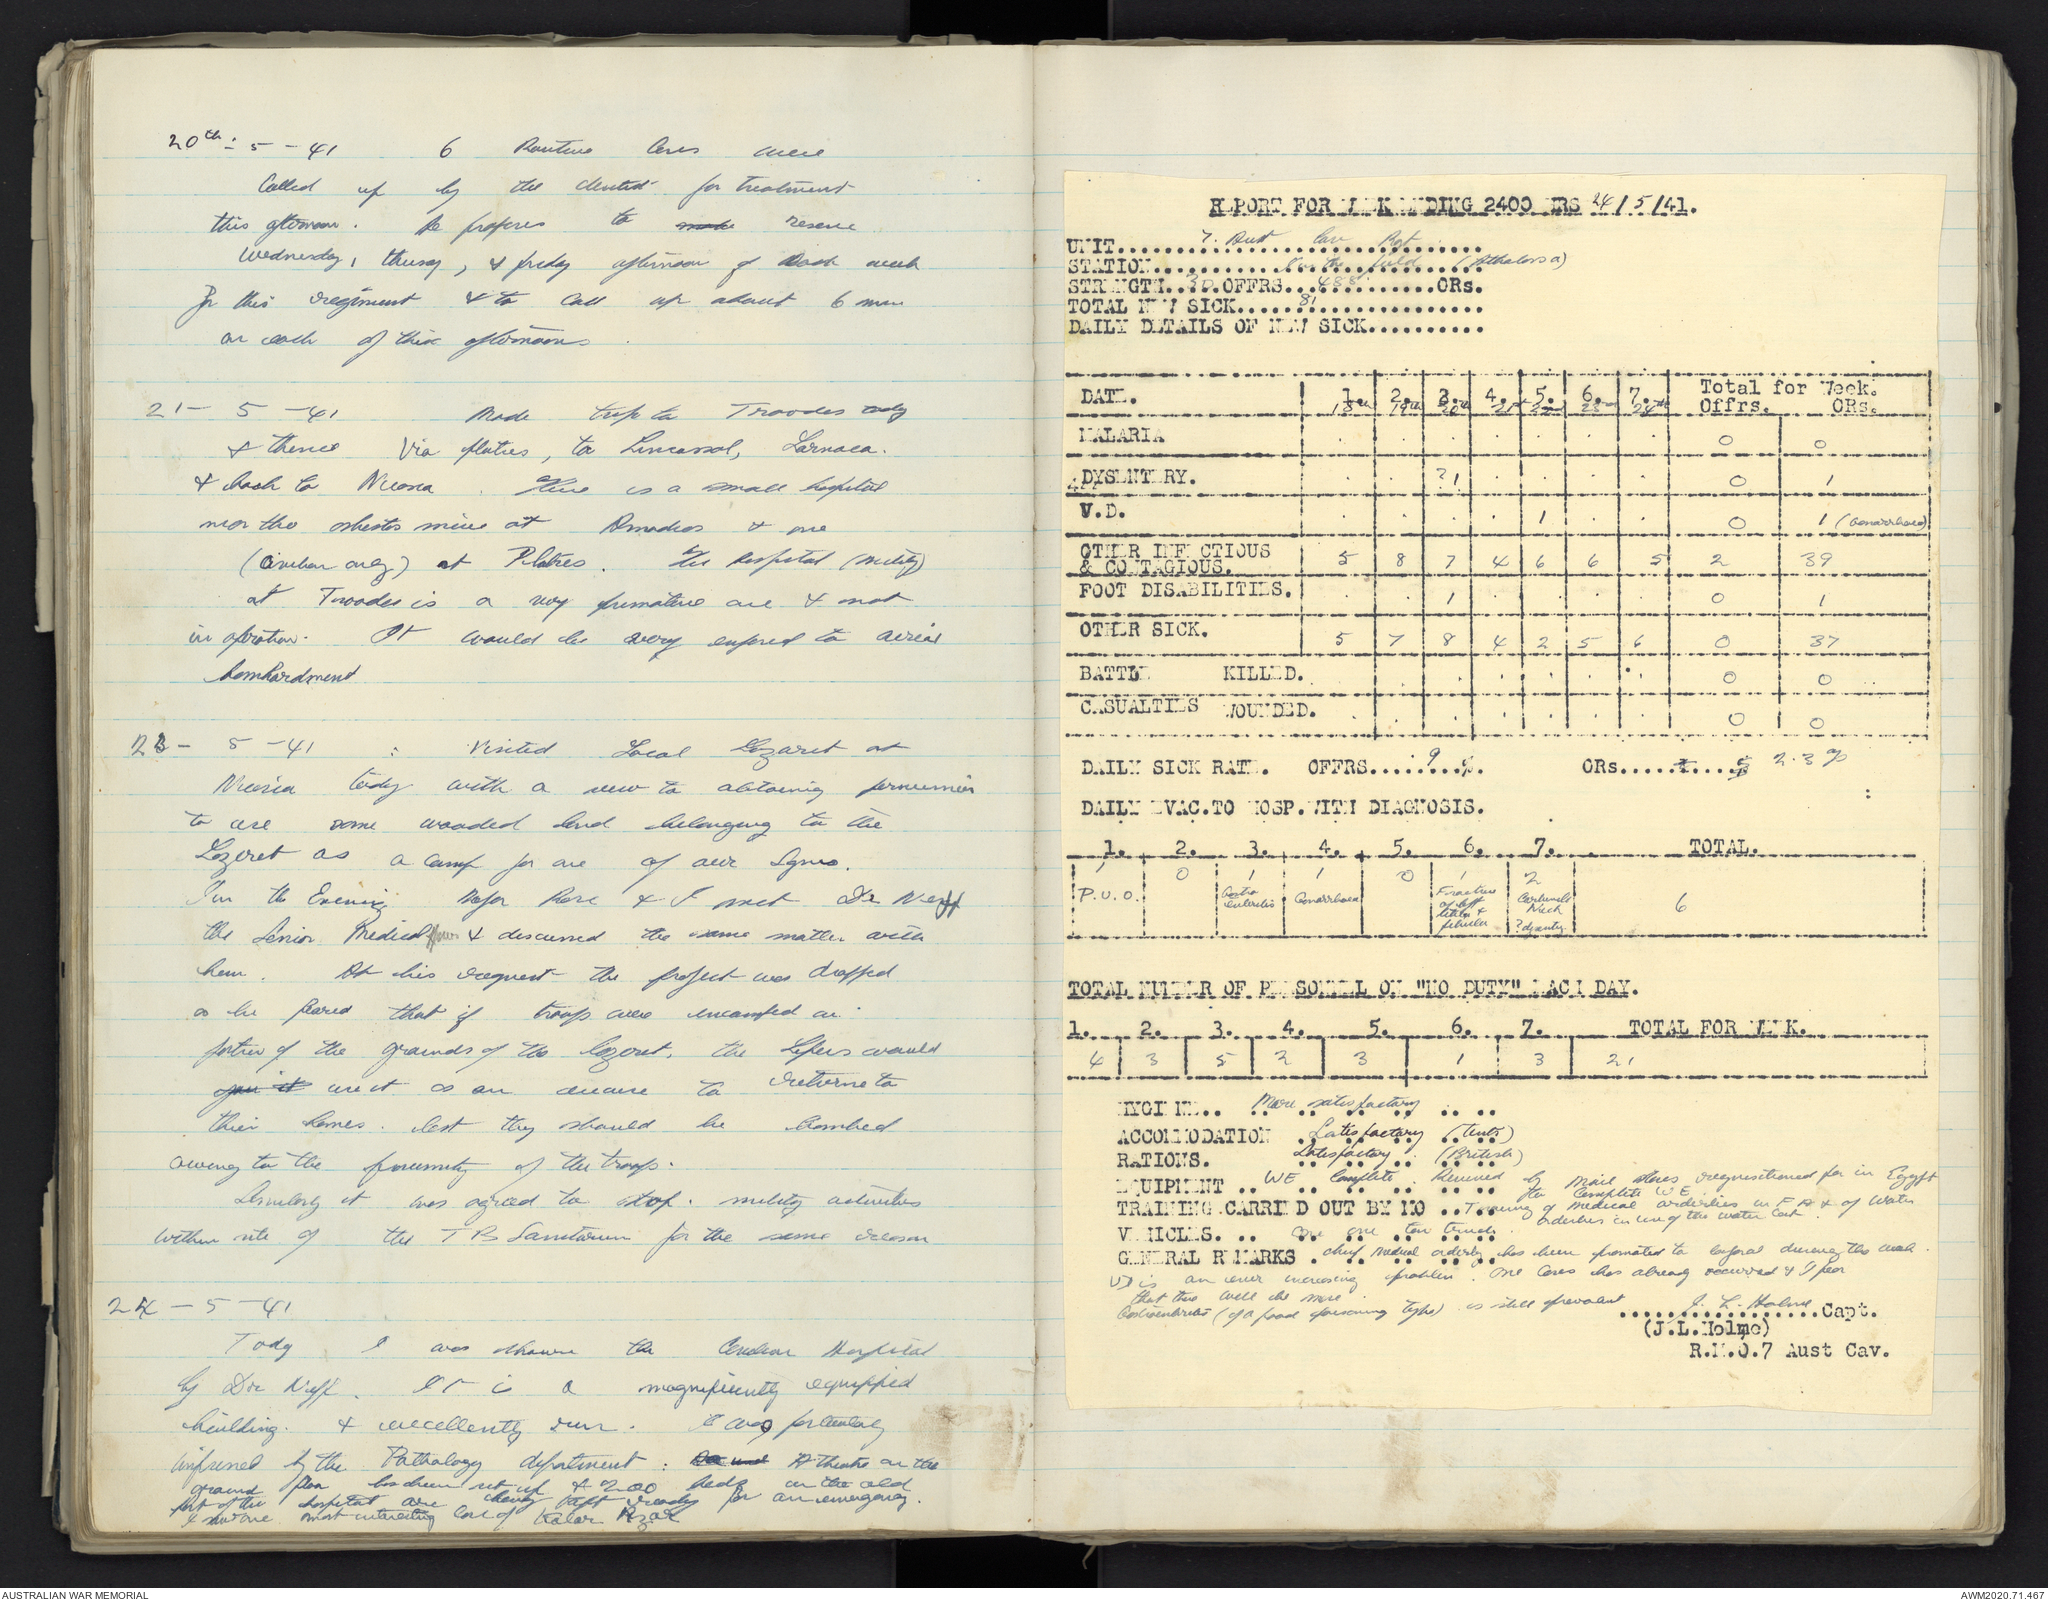 20th - 5 - 41 6 Routine Cases were
Called up by the dentist for treatment
this afternoon. He proposes to make reserve
Wednesday, thursday, & friday afternoon of each week
for this regiment & to call up about 6 men
on each of these afternoons.
21 - 5 - 41 Made trip to Troodos today
& thence Via platres, to Limassol, Larnaca.
& back to Nicosia. There is a small hospital
near the asbestos mine at Amiandos & one
(civilian only) at Platres. The hospital (military)
at Troodos is a very primative one & not
in operation. It would be very exposed to aerial
bombardment
23 - 5 - 41 : Visited Local Lazaret at
Nicosia today with a view to obtaining permission
to use some wooded land belonging to the
Lazaret as a camp for one of our Sqns.
In the Evening Major Rose & I met Dr Neff
the Senior Medical Officer & discussed the same matter with
him. At his request the project was dropped
as he feared that if troops were encamped on
portion of the grounds of the lazaret, the lepers would
use it as an excuse to return to
their homes. lest they should be bombed
owing to the proximity of the troops.
Similarly it was agreed to stop military activities
within site of the T B Sanitorium for the same reason
24 - 5 - 41
Today I was shown the Civilian Hospital
by Dr Neff. It is a magnificently equipped
building. & excellently run. I was particularly
impressed by the Pathology department. A theatre on the
ground floor has been set up & 200 beds in the old
part of the hospital are being kept ready for an emergency.
I saw one most interesting Case of Kalar Azar
REPORT FOR WEEK ENDING 2400 HRS 24/5/41.
UNIT.......7. Aust Cav Rgt.......
STATION.......In the field (Athalassa)
STRENGTH..30.OFFRS...488.......ORs.
TOTAL NEW SICK......81.......
DAILY DETAILS OF NEW SICK..........
DATE. 1. 2. 3. 4. 5. 6. 7. Total for Week.
18th 19th 20th 21st 22nd 23rd 24th Offrs. ORs.
MALARIA . . . . . . . 0 0
DYSENTERY. . . ?1 . . . . 0 1
V.D. . . . . 1 . . 0 1 (Gonarrhoea)
OTHER INFECTIOUS
& CONTAGIOUS. 5 8 7 4 6 6 5 2 39
FOOT DISABILITIES. . . 1 . . . . 0 1
OTHER SICK. 5 7 8 4 2 5 6 0 37
BATTLE KILLED. . . . . . . . 0 0
CASUALTIES WOUNDED. . . . . . . . 0 0
DAILY SICK RATE. OFFRS.......9..%. ORs.......% 2.3 %
DAILY EVAC.TO HOSP.WITH DIAGNOSIS.
1. 2. 3. 4. 5. 6. 7. TOTAL.
1 0 1 1 0 1 2
P.U.O. Gastro enteritis Gonarrhoea Fracture of left tibia & fibula Carbuncle Neck ? dysentry 6
TOTAL NUMBER OF PERSONNEL ON "NO DUTY" EACH DAY.
1. 2. 3. 4. 5. 6. 7. TOTAL FOR WEEK.
4 3 5 2 3 1 3 21
HYGIENE.. More satisfactory
ACCOMMODATION Satisfactory (tents)
RATIONS. Satisfactory (British)
EQUIPMENT .. WE Complete. Received by mail stores requisitioned for in Egypt
to Complete W E
TRAINING CARRIED OUT BY MO .. Training of medical orderlies in F A & of Water
orderlies in use of the water Cart.
VEHICLES. .. one one ton truck
GENERAL REMARKS . Chief medical orderly has been promoted to corporal during the week.
VD is an ever increasing problem. One Cases has already occurred & I fear
that this will be more.
Gastroenteritis (of a food poisoning type) is still prevalent
J. L. Holme Capt.
(J.L.Holme)
R.M.O.7 Aust Cav.
AUSTRALIAN WAR MEMORIAL
AWM2020.71.467